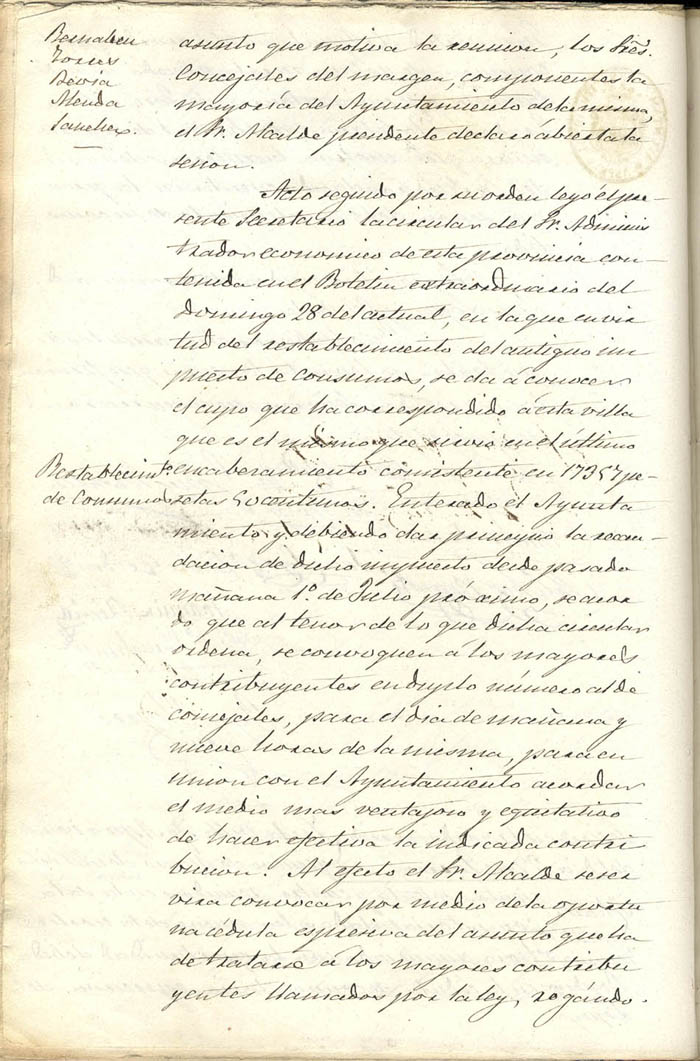 Bernabeu
Torres
Devia
Llenda
Sanchez.
asunto que motiva la reunion, los Sres.
Concejales del margen, componentes la
mayoría del Ayuntamiento de la misma,
el Sr. Alcalde presidente declaró abierta la
sesion.
Acto seguido por su orden leyó el pre-
sente Secretario la circular del Sr. Adminis
trador economico de esta provincia con-
tenida en el Boletin extraordinario del
Domingo 28 del actual, en la que en vir
tud del restablecimiento del antiguo im
puesto de Consumos, se da á conocer
el cupo que ha correspondido á esta villa
que es el mismo que sirvió en el último
Restablecimto.
de Consumos
encabezamiento consistente en 17357 pe-
setas 50 centimos. Enterado el Ayunta
miento y debiendo dar principio la recau-
dacion de dicho impuesto desde pasado
mañana 1º de Julio próximo, se acor
dó que al tenor de lo que dicha circular
ordena, se convoquen á los mayores
contribuyentes en duplo número al de
concejales, para el dia de mañana y
nueve horas de la misma, para en
union con el Ayuntamiento acordar
el medio mas ventajoso y equitativo
de hacer efectiva la indicada contri
bucion. Al efecto el Sr. Alcalde se ser
vira convocar por medio de la oportu
na cédula espresiva del asunto que ha
de tratarse á los mayores contribu
yentes llamados por la ley, rogándo-